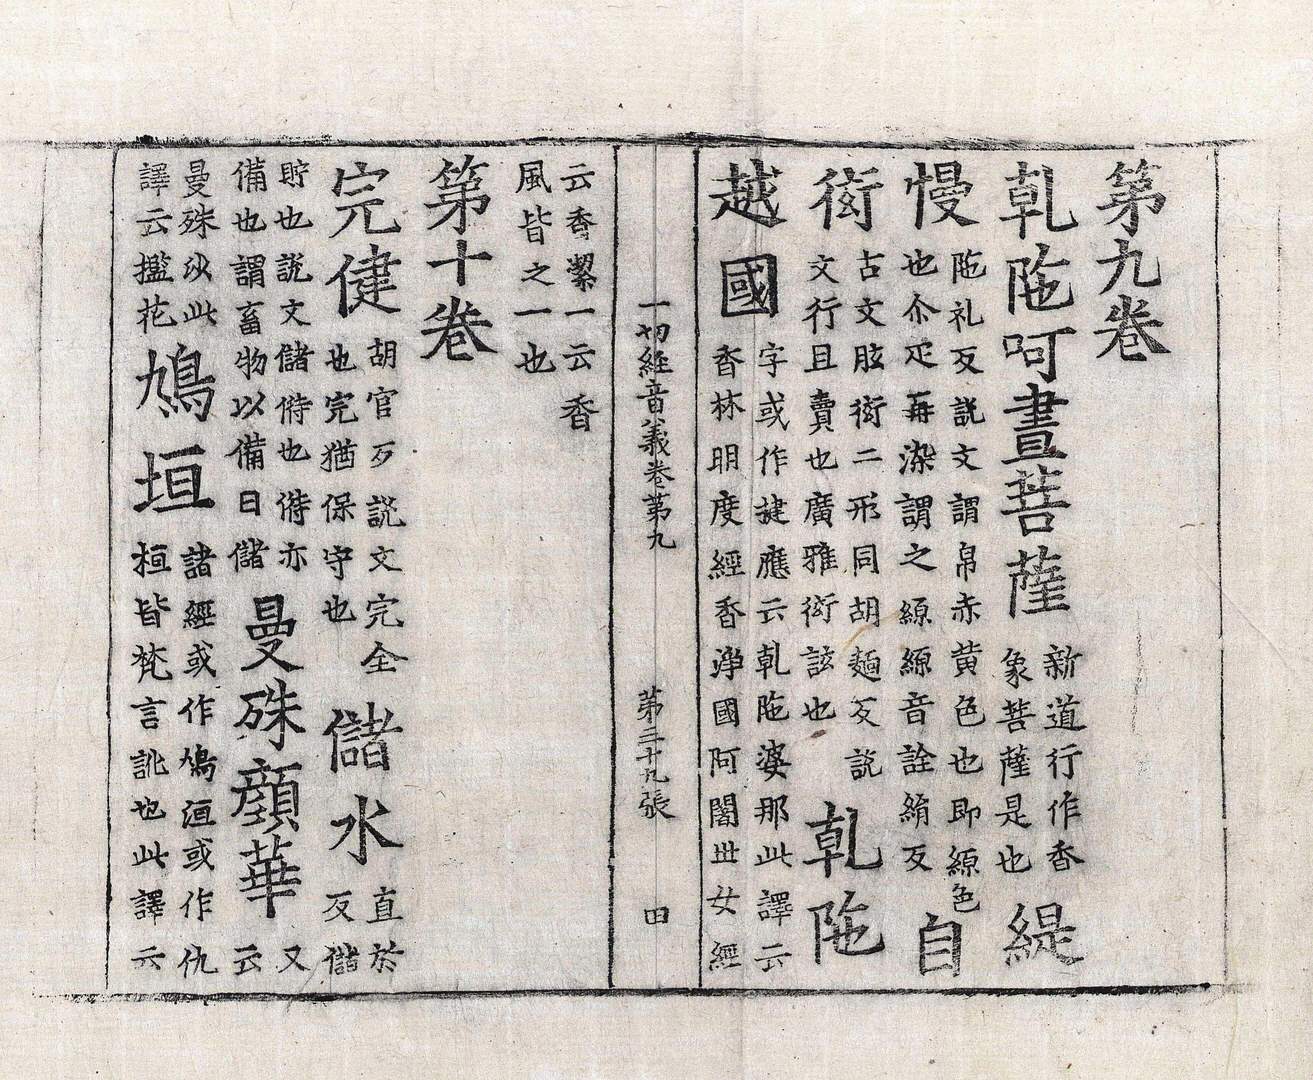 第九卷
乹陁呵晝菩薩 新道行作香 象菩薩是也 緹
慢 陁礼反説文謂帛赤黄色也即縓色 也尒疋再染謂之縓縓音詮絹反 自
衒 古文眩衒二形同胡麵反説 文行且賣也廣雅衒詃也 乹陁
越國 字或作揵應云乹陁婆那此譯云 香林明度經香淨國阿闍丗女經
一切經音義卷第九 第二十九張 田
云香絜一云香 風皆之一也
第十卷
完健 胡官歹説文完全 也完猶保守也 儲水 直於 反儲
貯也説文儲偫也偫亦 備也謂畜物以備日儲 曼殊顔華 又 云
曼殊沙此 譯云擥花 鳩垣 諸經或作鳩洹或作仇 桓皆梵言訛也此譯云